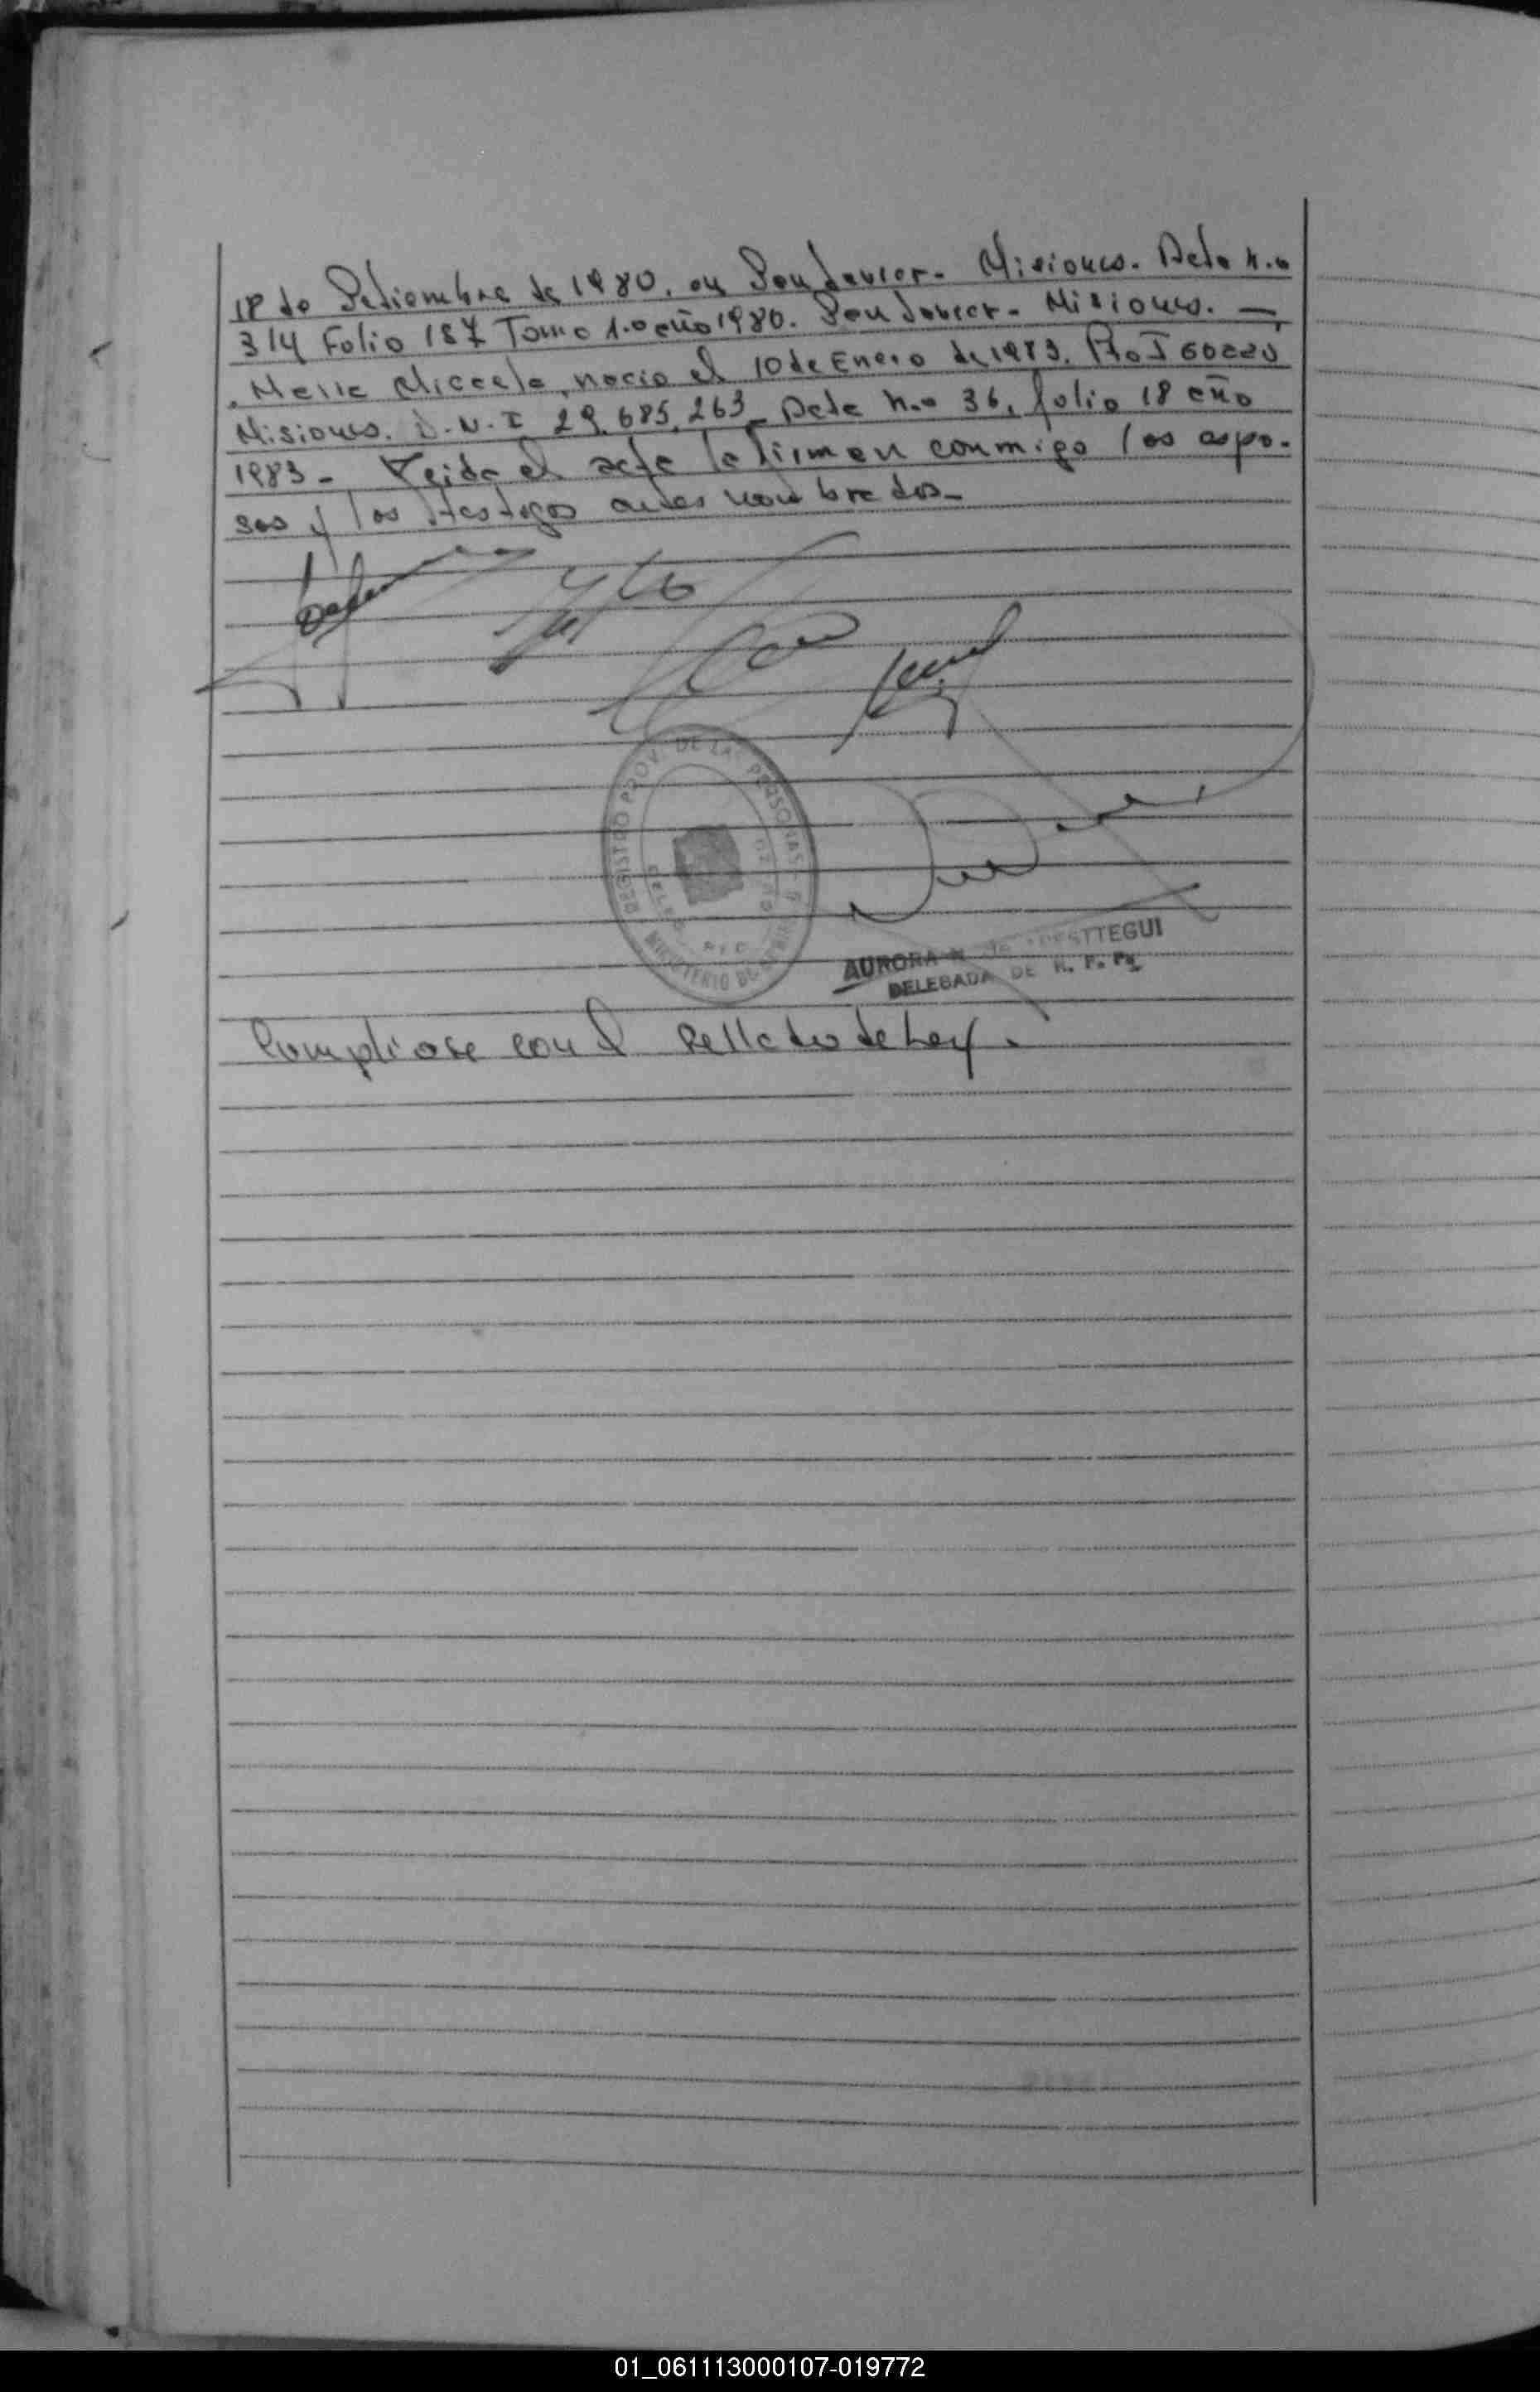 18 de Setiembre de 1980. en San Javier - Misiones. Acta N.o
314 Folio 187 Tomo 1.o año 1980. San Javier - Misiones. —
. Maria Micaela, nacio el 10 de Enero de 1983. Pto I
Misiones. D.N.I 29.685.263 - Acta N.o 36, folio 18 año
1983 - Leida el acta la firman conmigo los espo-
sos y los testigos antes nombrados -
REGISTRO PROV. DE LAS PERSONAS
MINISTERIO DE
AURORA de
DELEGADA DE R. P. P.
Cumpliose con el sellado de Ley.
01_061113000107-019772